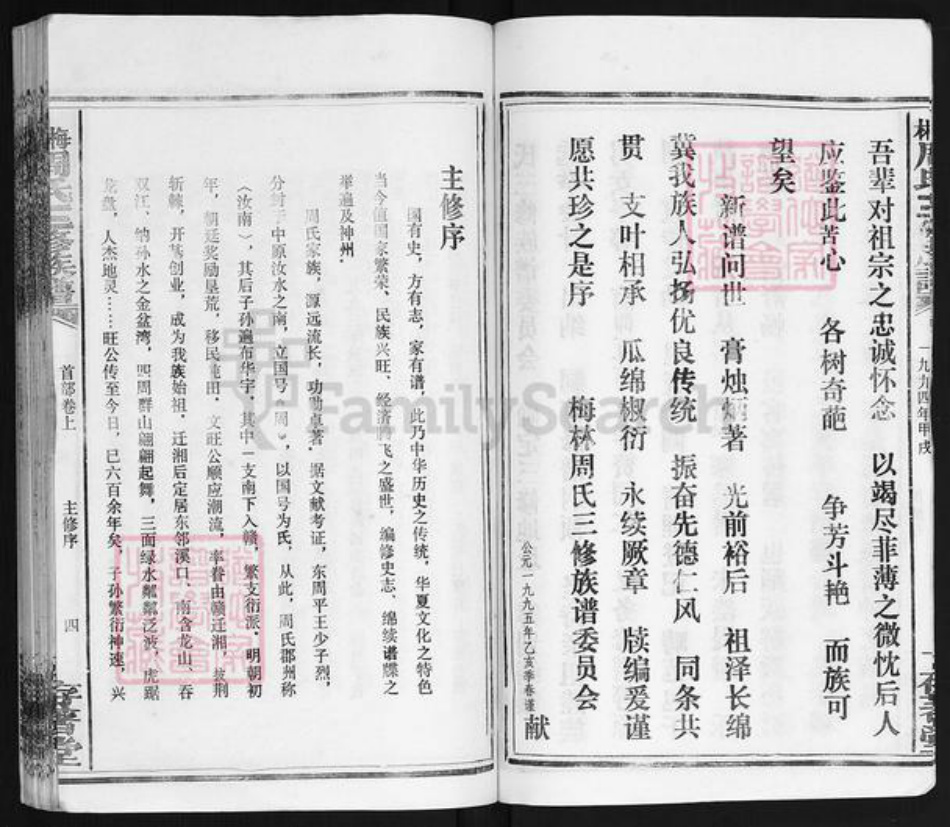 周氏三修族譜
一九九四年甲戌
吾辈对祖宗之忠诚怀念 以竭尽菲薄之微忱后人
应鉴此苦心 各树奇葩 争芳斗艳 而族可
望矣
新谱问世 膏烛炳著 光前裕后 祖泽长绵
冀我族人弘扬优良传统 振奋先德仁风 同条共
贯 支叶相承 瓜绵椒衍 永续厥章 牍编爰谨
愿共珍之是序 梅林周氏三修族谱委员会
公元一九九五年乙亥季春谨献
主修序
国有史，方有志，家有谱，此乃中华历史之传统，华夏文化之特色
当今值国家繁荣、民族兴旺、经济腾飞之盛世，编修史志、绵续谱牒之
举遍及神州．
周氏家族，源远流长，功勋卓著．据文献考证，东周平王少子烈，
分封于中原汝水之南，立国号《周》，以国号为氏，从此，周氏郡州称
《汝南》，其后子孙遍布华宇，其中一支南下入赣，繁文衍派．明朝初
年，朝廷奖励垦荒，移民屯田．文旺公顺应潮流，率眷由赣迁湘，披荆
斩棘，开基创业，成为我族始祖．迁湘后定居东邻溪口、南含龙山、吞
双江、纳孙水之金盆湾，四周群山翩翩起舞，三面绿水粼粼泛波，虎踞
龙盘，人杰地灵……旺公传至今日，已六百余年矣，子孙繁衍神速，兴
梅周氏三修族譜
首部卷上
主修序
四
FamilySearch